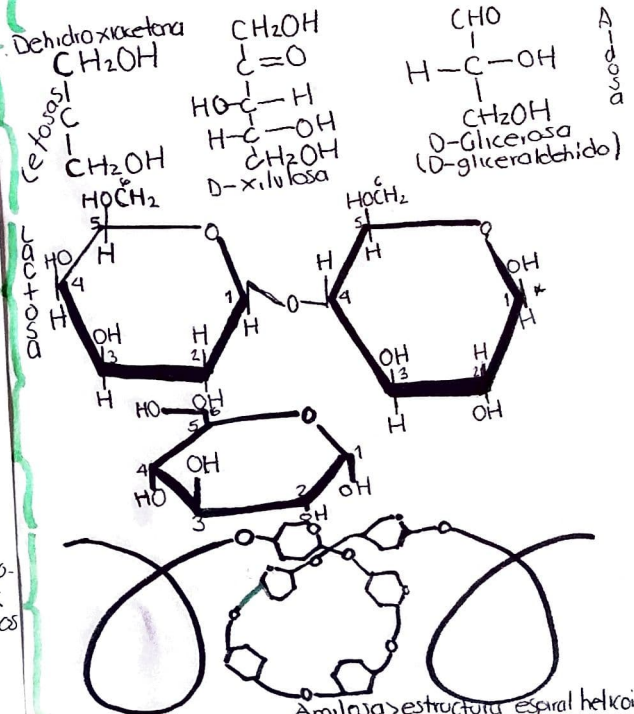 Dehidroxiacetona
CH2OH
C
C
CH2OH
Cetosas
CH2OH
C=O
HO-C-H
H-C-OH
CH2OH
D-xilulosa
CHO
H-C-OH
CH2OH
D-Glicerosa
(D-gliceraldehido)
Aldosa
Lactosa
HOCH2
6
5
O
H
HO
4
H
OH
3
H
H
2
OH
1
H
O
HOCH2
6
5
O
H
H
4
OH
3
H
H
2
OH
OH
1
*
H
HO
6
5
O
4
HO
OH
3
2
OH
1
OH
O
O
O
O
O
O
O
O
os
Amilosa>estructura espiral helicoi